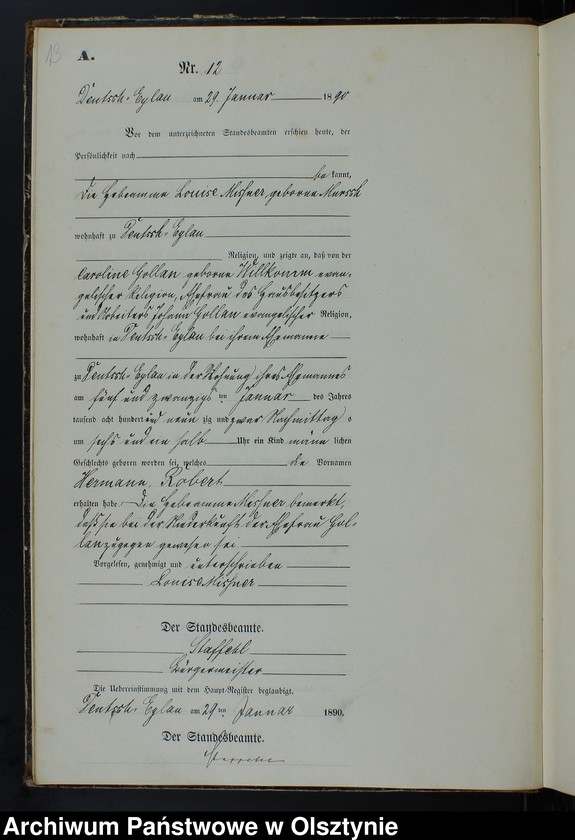 13
A.
Nr. 12
Deutsch-Eylau am 29. Januar 1890
Vor dem unterzeichneten Standesbeamten erschien heute, der
Persönlichkeit nach
bekannt,
die Hebeamme Louise Meißner, geborne
wohnhaft zu Deutsch-Eylau
Religion, und zeigte an, daß von der
Caroline Gollan geborne Willkomm evan-
gelischer Religion, Ehefrau des Hausbesitzers
und Arbeiters Johann Gollan evangelischer Religion,
wohnhaft in Deutsch-Eylau bei ihrem Ehemanne
zu Deutsch-Eylau in der Wohnung ihres Ehemannes
am fünf und zwanzigsten Januar des Jahres
tausend acht hundert und neunzig und zwar Nachmittags
um sechs und ein halb Uhr ein Kind männlichen
Geschlechts geboren worden sei, welches die Vornamen
Hermann, Robert
erhalten habe. Die Hebeamme Meißner bemerkt,
daß sie bei der Niederkunft der Ehefrau Gol-
lan zugegen gewesen sei
Vorgelesen, genehmigt und unterschrieben
Louise Meißner
Der Standesbeamte.
Staffehl
Bürgermeister
Die Uebereinstimmung mit dem Haupt-Register beglaubigt.
Deutsch-Eylau am 29ten Januar 1890.
Der Standesbeamte.
Archiwum Państwowe w Olsztynie